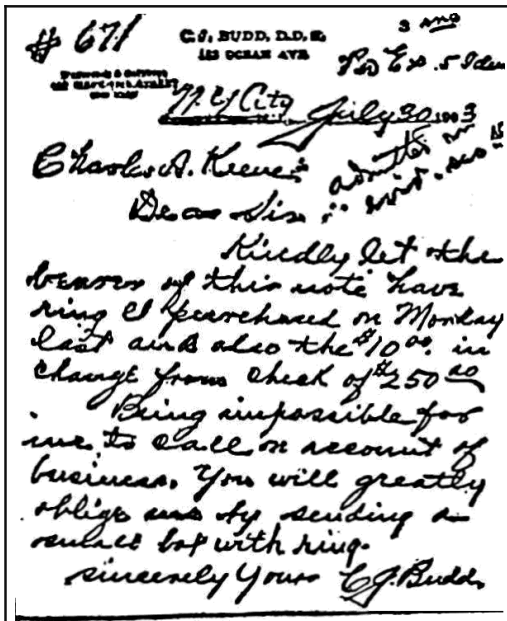 # 671
C. J. BUDD, D.D.S.
OCEAN AVE
N.Y City July 30 1903
Charles A. Keene
Dear Sir
Kindly let the
bearer of this note have
ring I purchased on Monday
last and also the $10.00 in
change from check of $250.00
Being impossible for
me to call on account of
business. You will greatly
oblige me by sending a
small box with ring.
sincerely Yours C.J. Budd.